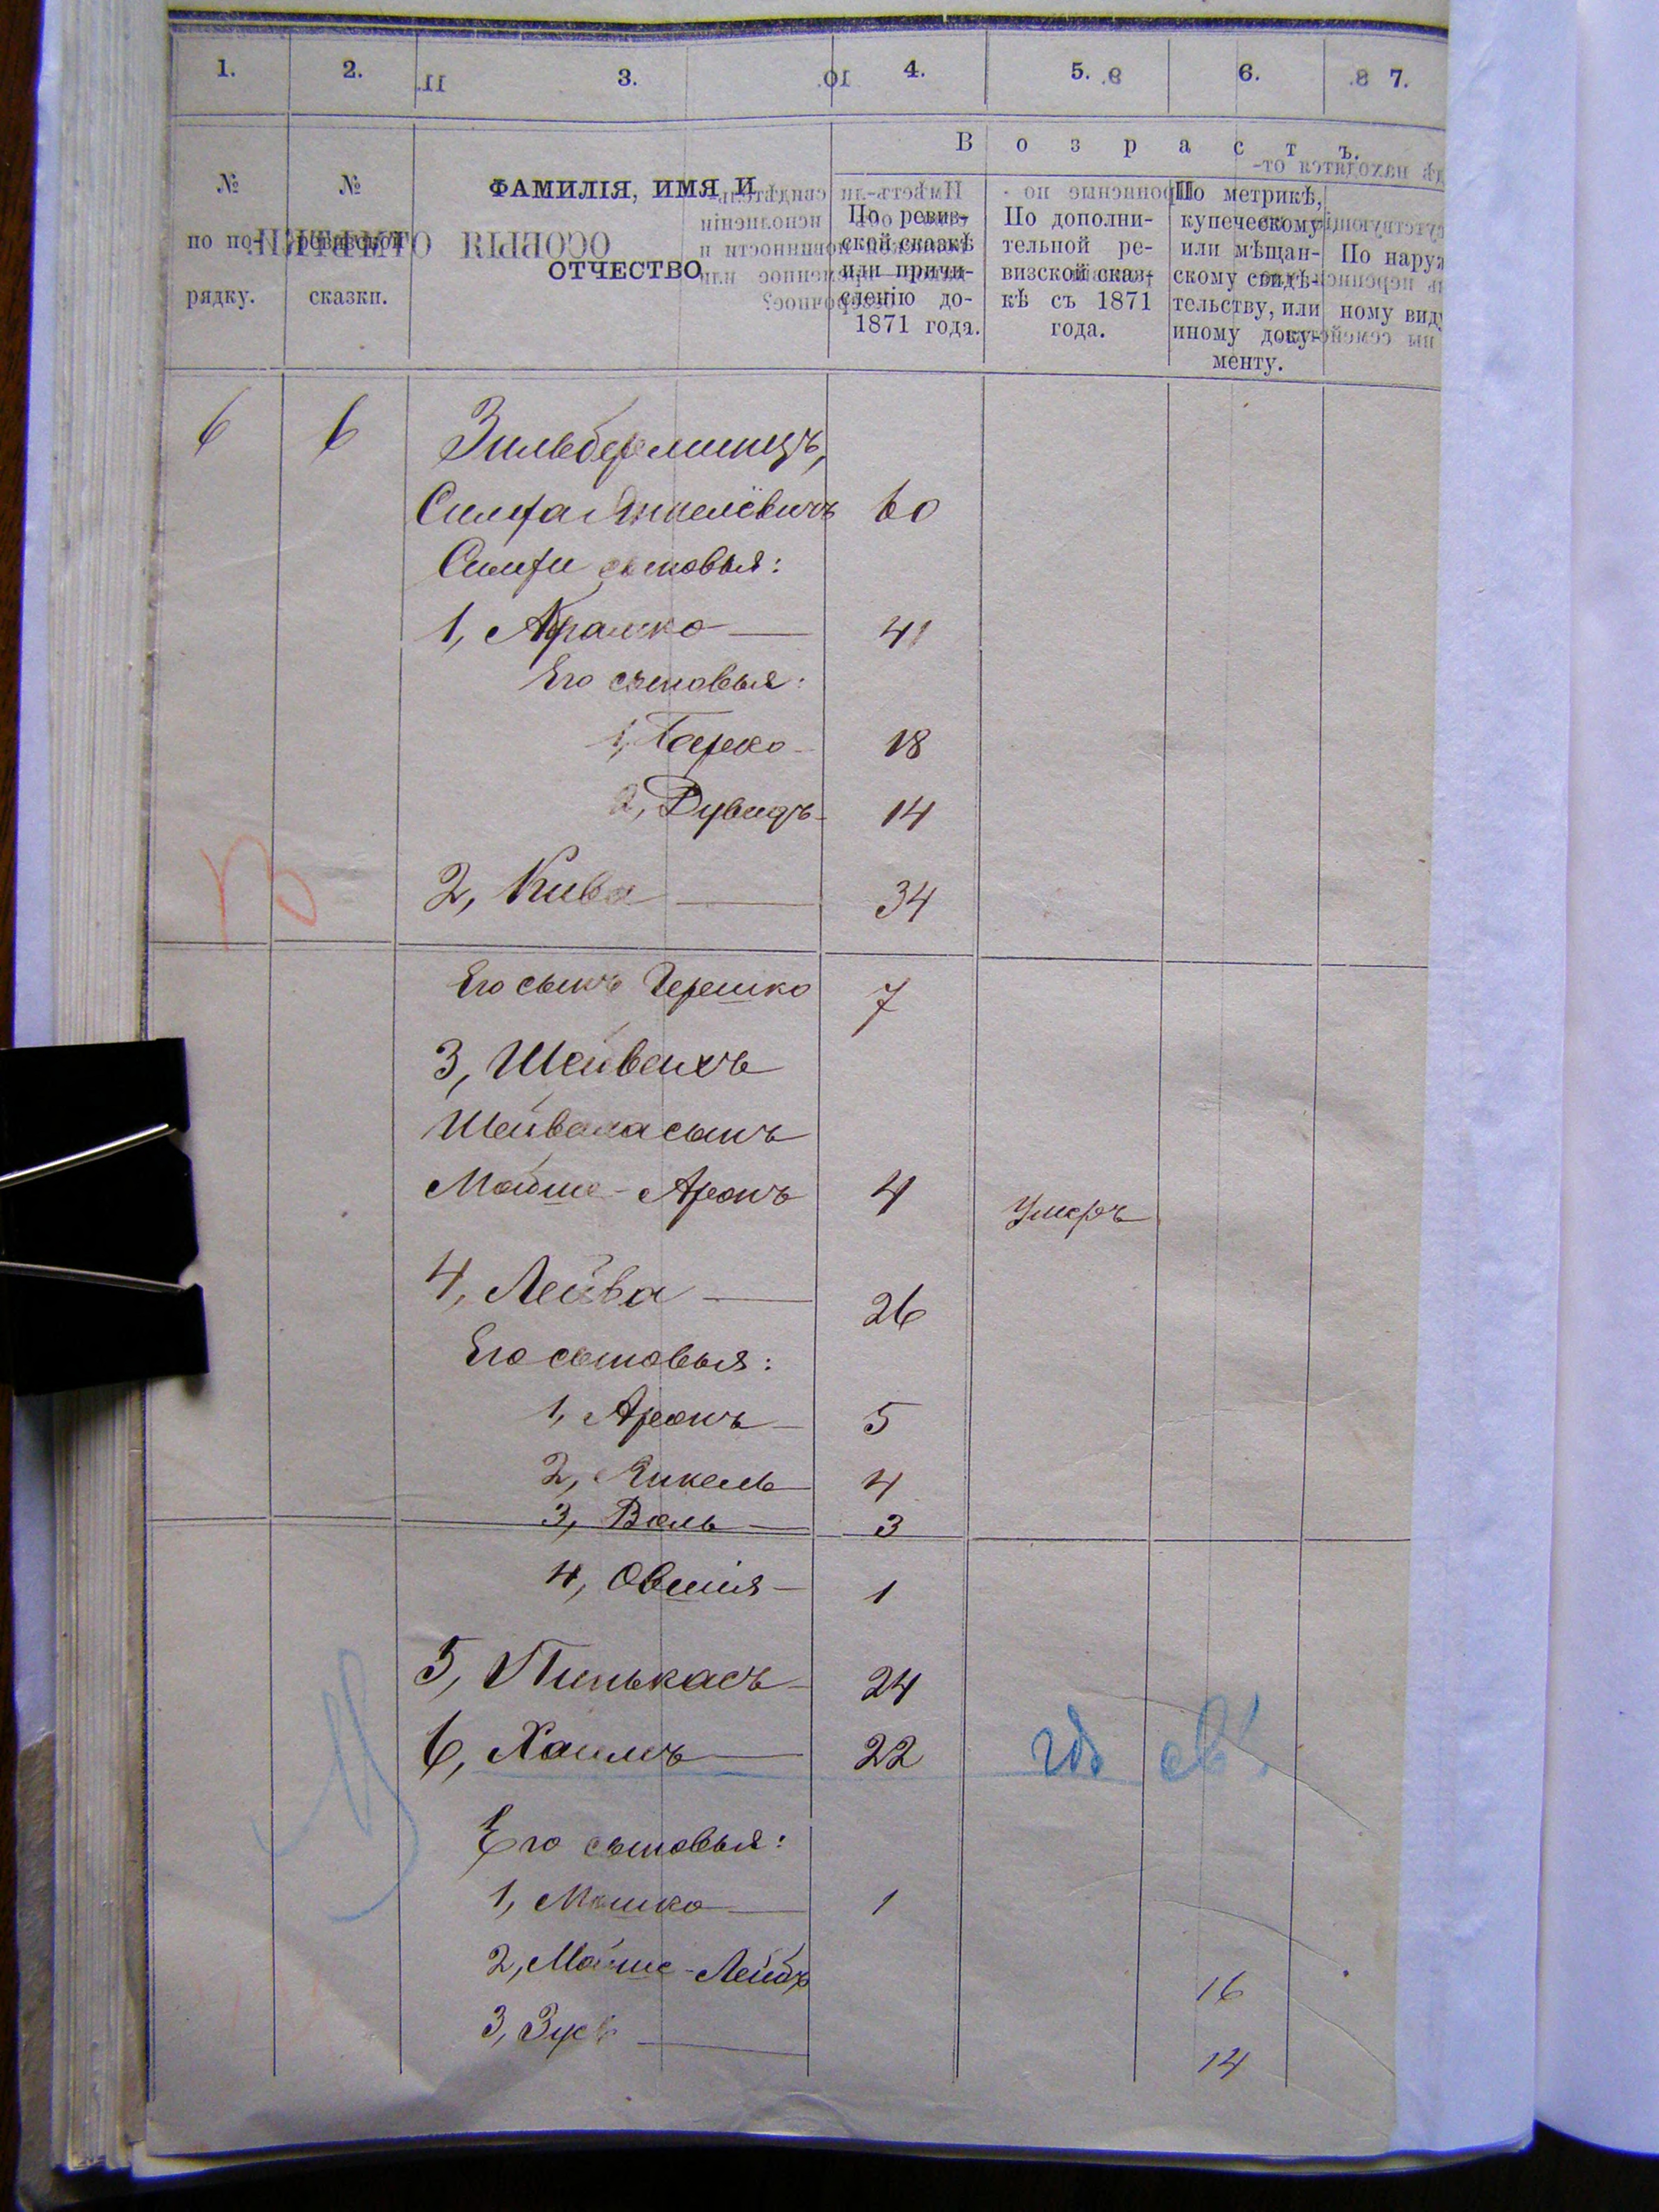 1. 2. 3. 4. 5. 6. 7.
№ по порядку.
№ ревизской сказки.
ФАМИЛІЯ, ИМЯ И
ОТЧЕСТВО
Возрастъ.
По ревиз-
ской сказкѣ
или причи-
сленію до-
1871 года.
По дополни-
тельной ре-
визской сказ-
кѣ съ 1871
года.
По метрикѣ,
купеческому
или мѣщан-
скому свидѣ-
тельству, или
иному доку-
менту.
По наруж
ному виду
6 6 Зильберминцъ,
Симха Янкелёвичъ 60
Симхи сыновья:
1, Абрамко 41
Его сыновья:
1, Берко 18
2, Дувидъ 14
2, Кива 34
Его сынъ Гершко 7
3, Шейвехъ
сынъ
Мойше-Аронъ 4 Умеръ
4, Лейба 26
Его сыновья:
1, Аронъ 5
2, Янкель 4
3, Воль 3
4, Овшія 1
5, Пинькасъ 24
6, Хаимъ 22
Его сыновья:
1, Мошко 1
2, Мойше-Лейбъ 16
3, Зусь 14